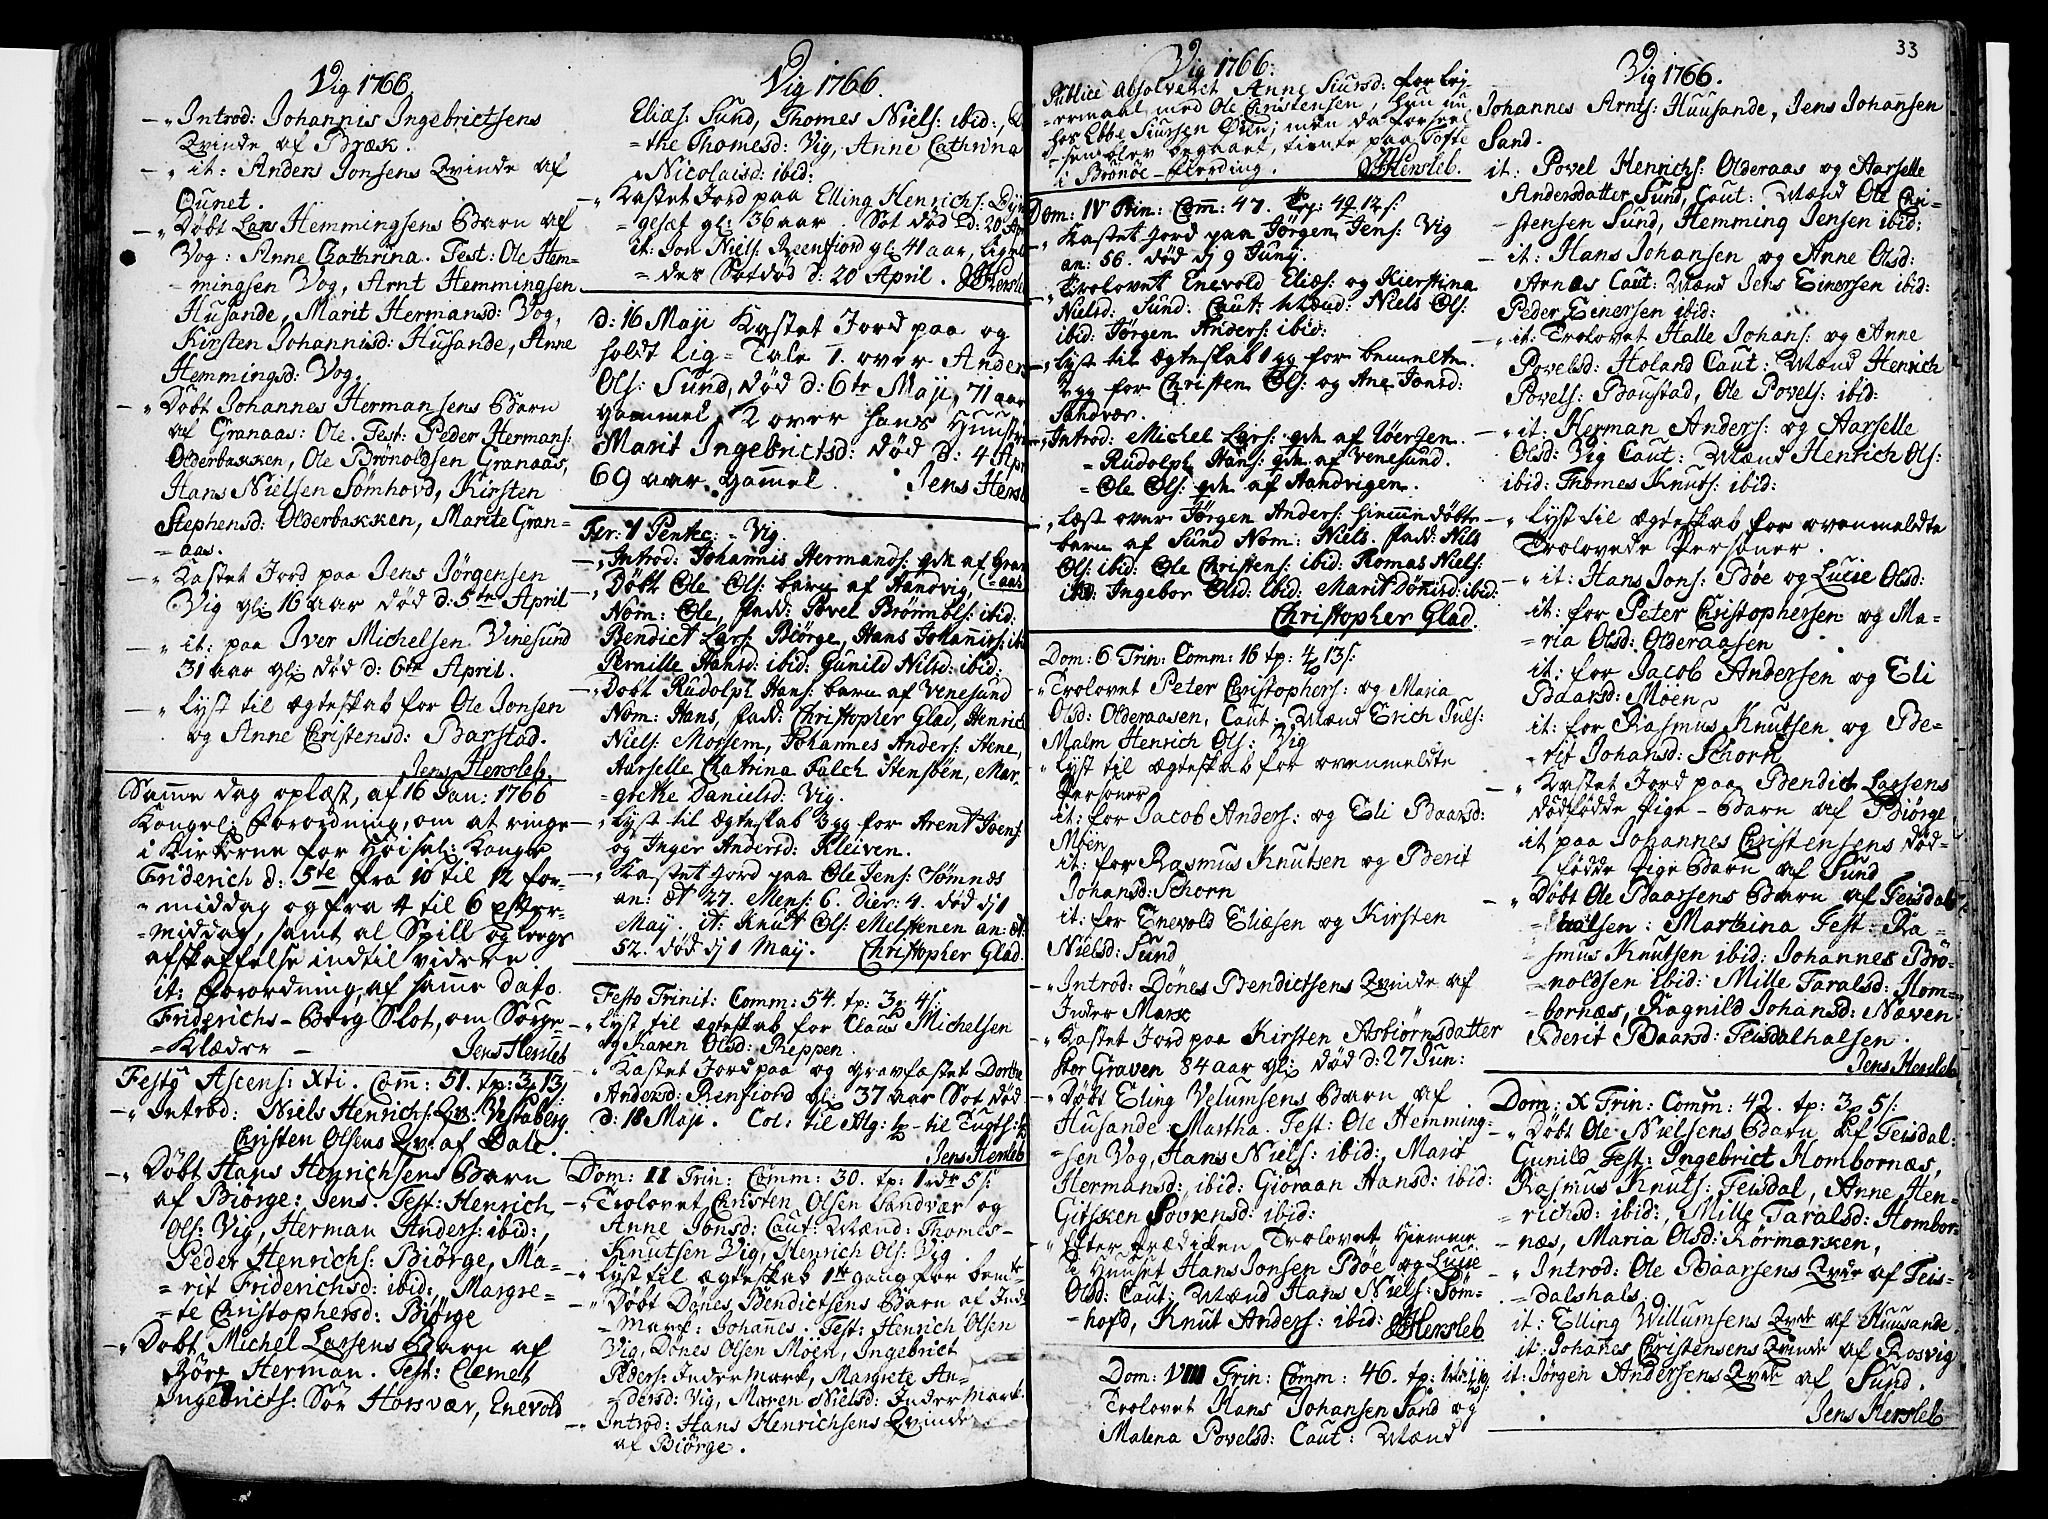 Vig 1766.
" Introd: Johannis Ingebrictsens
Qvinde af Bræk.
" it: Anders Jonsens Qvinde af
Ounet.
" Døbt Lars Hemmingsens Barn af
Vog: Anne Cathrina. Test: Ole Hem=
mingsen Vog, Arnt Hemmingsen
Husande, Marit Hermansd: Vog,
Kirsten Johannisd: Husande, Anne
Hemmingsd: Vog.
" Døbt Johannes Hermansens Barn
af Granaas: Ole. Test: Peder Hermans:
Olderbakken, Ole Brønoldsen Granaas,
Hans Nielsen Sømhovd, Kirsten
Stephensd: Olderbakken, Marite Gran=
=aas.
" Kastet Jord paa Jens Jørgensen
Vig gl: 16 aar død d: 5te April
" it: paa Iver Michelsen Vinesund
31 aar gl: død d: 6te April.
" Lyst til ægteskab for Ole Jonsen
og Anne Christensd: Barstad.
Jens Hersleb.
Samme dag oplæst, af 16 Jan: 1766
Kongel: Forordning, om at ringe
i Kirkerne for Høisal: Konge
Friderich d: 5te fra 10 til 12 for=
=middag og fra 4 til 6 efter=
=middag, samt al Spill og Legs
afskaffelse indtil videre
it: Forordning, af samme dato
Friderichs-Berg Slot, om Sørge=
=Klæder - Jens Hersleb
Festo Ascens: Xti. Comm: 51. tp: 3 13
" Introd: Niels Henrichs: Qv: Vestaberg.
Christen Olsens Qv: af Dale.
" Døbt Hans Henrichsens Barn
af Biørge: Jens. Test: Henrich
Ols: Vig, Herman Anders: ibid:,
Peder Henrichs: Biørge, Ma=
=rit Friderichsd: ibid: Margre=
=te Christophersd: Biørge
" Døbt Michel Larsens Barn af
Herman. Test: Clemet
Ingebricts: Søn Horsvær, Enevold
Vig 1766.
Eliæs: Sund, Thomes Niels: ibid:,
=the Thomesd: Vig, Anne Cathrina
Nicolaisd: ibid:
" Kastet Jord paa Elling Henrichs:
=gesæt gl: 36 aar. Sot død d: 20
it: Jon Niels: Reenfiord gl: 41 aar,
=der Sotdød d: 20 April. J Hersleb
d: 16 Maji Kastet Jord paa og
holdt Lig=Tale 1. over Anders
Ols: Sund, død d: 6te Maji, 71 aar
gammel, 2 over hans Huustru
Marit Ingebrictsd: død d: 4 Apr
69 aar gammel. Jens Hersleb
Fer: 1 Pentec: - Vig.
" Introd: Johannis Hermands: qde af Gran
aas
" Døbt Ole Ols: barn af Handvig,
Nom: Ole, fadd: Povel Brømbls: ibid:
Bendict Lars: Biørge, Hans Johannis:
Pernille Hansd: ibid: Gunild Nilsd: ibid:
" Døbt Rudolph Hans: barn af Venesund
Nom: Hans, fadd: Christopher Glad, Henrich
Niels: Morsem, Johannes Anders: Stene,
Aarselle Chatrina Falch Stensøen, Mar=
=grethe Danielsd: Vig.
" Lyst til ægteskab 3 gg for Arent Joens:
og Inger Andersd: Kleiven.
" Kastet Jord paa Ole Jens: Sømnæs
an: æt 27. Mens: 6. Dier: 4. død d 1
May. it: Knut Ols: Melstenen an: æt:
52. død d 1 May. Christopher Glad.
Festo Trinit: Comm: 54. tp: 3 4
" Lyst til ægteskab for Claus Michelsen
og Karen Olsd: Reppen.
" Kastet Jord paa og gravfæstet
Andersd: Renfiord gl: 37 aar Sot død
d: 18 Maji. Col: til Alg: - til Tugts:
Jens Hersleb
Dom: II Trin: Comm: 30. tp: 1 5
" Trolovet Christen Olsen Sandvær og
Anne Jonsd: Caut: Mænd: Thomes
Knutsen Vig, Henrich Ols: Vig
" Lyst til ægteskab 1te gang for bemte
" Døbt Dønes Bendictsens Barn af Ind
=mark: Johannes. Test: Henrich Olsen
Vig, Dønes Olsen Moen, Ingebrict
Peders: Indermark, Margrete An=
=dersd: Vig, Maren Nielsd: Indermark.
" Introd: Hans Henrichsens Qvinde
af Biørge.
Vig 1766:
Publicè absolveret Anne Siursd: for Lei=
=ermaal med Ole Christensen, hun nu
hos Ebbe Siursen Øien, men da forseel
=sen blev begaaet, tiente paa Tofte
i Brønøe-Fierding. J Hersleb.
Dom: IV Trin: Comm: 47. tp: 4 12
" Kastet Jord paa Jørgen Jens: Vig
an: 56. død d 9 Juny.
" Trolovet Enevold Eliæs: og Kierstina
Nielsd: Sund: Caut: Mænd: Niels Ols:
ibid: Jørgen Anders: ibid:
" Lyst til ægteskab 1 gg for bemelte
2 gg for Christen Ols: og Ane Jonsd:
Sandvær.
" Introd: Michel Lars: qde af
= Rudolph Hans: qde af Venesund.
= Ole Ols: qde af Handvigen.
" Læst over Jørgen Anders: hiemmedøbte
barn af Sund Nom: Niels. fadd: Nils
Ols: ibid: Ole Christens: ibid: Romas Niels:
ibid Ingebor Olsd: ibid: Marit Dønisd: ibid:
Christopher Glad.
Dom: 6 Trin: Comm: 16 tp: 4 13
" Trolovet Peter Christophers: og Maria
Olsd: Olderaasen, Caut: Mænd Erich Juls:
Malm Henrich Ols: Vig
" Lyst til ægteskab for ovenmeldte
Personer
it: for Jacob Anders: og Eli Baarsd:
Møen
it: for Rasmus Knutsen og Berit
Johansd: Schorn
it: for Enevold Eliæsen og Kirsten
Nielsd: Sund
" Introd: Dønes Bendictsens Qvinde af
Inder Mark
" Kastet Jord paa Kirsten Asbiørnsdatter
Stor Graven 84 aar gl: død d: 27 Jun:
" Døbt Eling Velumsens Barn af
Husande Martha. Test: Ole Hemming=
=sen Vog, Hans Niels: ibid:, Marit
Hermansd: ibid: Giøraan Hansd: ibid:
Gitsken Sovrensd: ibid:
" Efter Prædiken Trolovet Hiemme
i Huuset Hans Jonsen Bøe og Lucie
Olsd: Caut: Mænd Hans Niels: Søm=
=hofd, Knut Anders: ibid: J Hersleb
Dom: VIII Trin: Comm: 46. tp:
Trolovet Hans Johansen Sand og
Malena Povelsd: Caut: Mænd
33
Vig 1766.
Johannes Arnts: Huusande, Jens Johansen
Sand.
it: Povel Henrichs: Olderaas og Aarselle
Andersdatter Sund, Caut: Mænd Ole Chri=
=stensen Sund, Hemming Jensen ibid:
" it: Hans Johansen og Anne Olsd:
Arnæs Caut: Mænd Jens Einersen ibid:
Peder Einersen ibid:
" it: Trolovet Halle Johans: og Anne
Povelsd: Holand Caut: Mænd Henrich
Povels: Boustad, Ole Povels: ibid:
" it: Herman Anders: og Aarselle
Olsd: Vig Caut: Mænd Henrich Ols:
ibid: Thomes Knuts: ibid:
" Lyst til ægteskab for ovenmeldte
Trolovede Personer.
" it: Hans Jons: Bøe og Lucie Olsd:
it: for Peter Christophersen og Ma=
=ria Olsd: Olderaasen
it: for Jacob Andersen og Eli
Baarsd: Moen
it: for Rasmus Knutsen og Be=
=rit Johansd: Schorn
" Kastet Jord paa Bendict Larsens
dødfødde Pige-Barn af Biørge
it paa Johannes Christensens død=
fødde Pige Barn af Sund
" Døbt Ole Baarsens Barn af Teisdal
=halsen: Marthina Test: Ra=
smus Knutsen ibid: Johannes Brø=
=noldsen ibid: Mille Taralsd: Hom=
=bornæs, Ragnild Johansd: Næven
Berit Baarsd: Teisdalhalsen.
Jens Hersleb
Dom: X Trin: Comm: 42. tp: 3 5
" Døbt Ole Nielsens Barn af Teisdal:
Gunild Test: Ingebrict Hombornæs,
Rasmus Knuts: Teisdal, Anne Hen=
=richsd: ibid:, Mille Taralsd: Hombor=
=næs, Maria Olsd: Kørmarken,
" Introd: Ole Baarsens Qvde af Teis=
=dalshals.
it: Elling Willumsens Qvde af Huusande
it: Johanes Christensens Qvinde af Rosvig
it: Jørgen Andersens Qvde af Sund.
Jens Hersleb